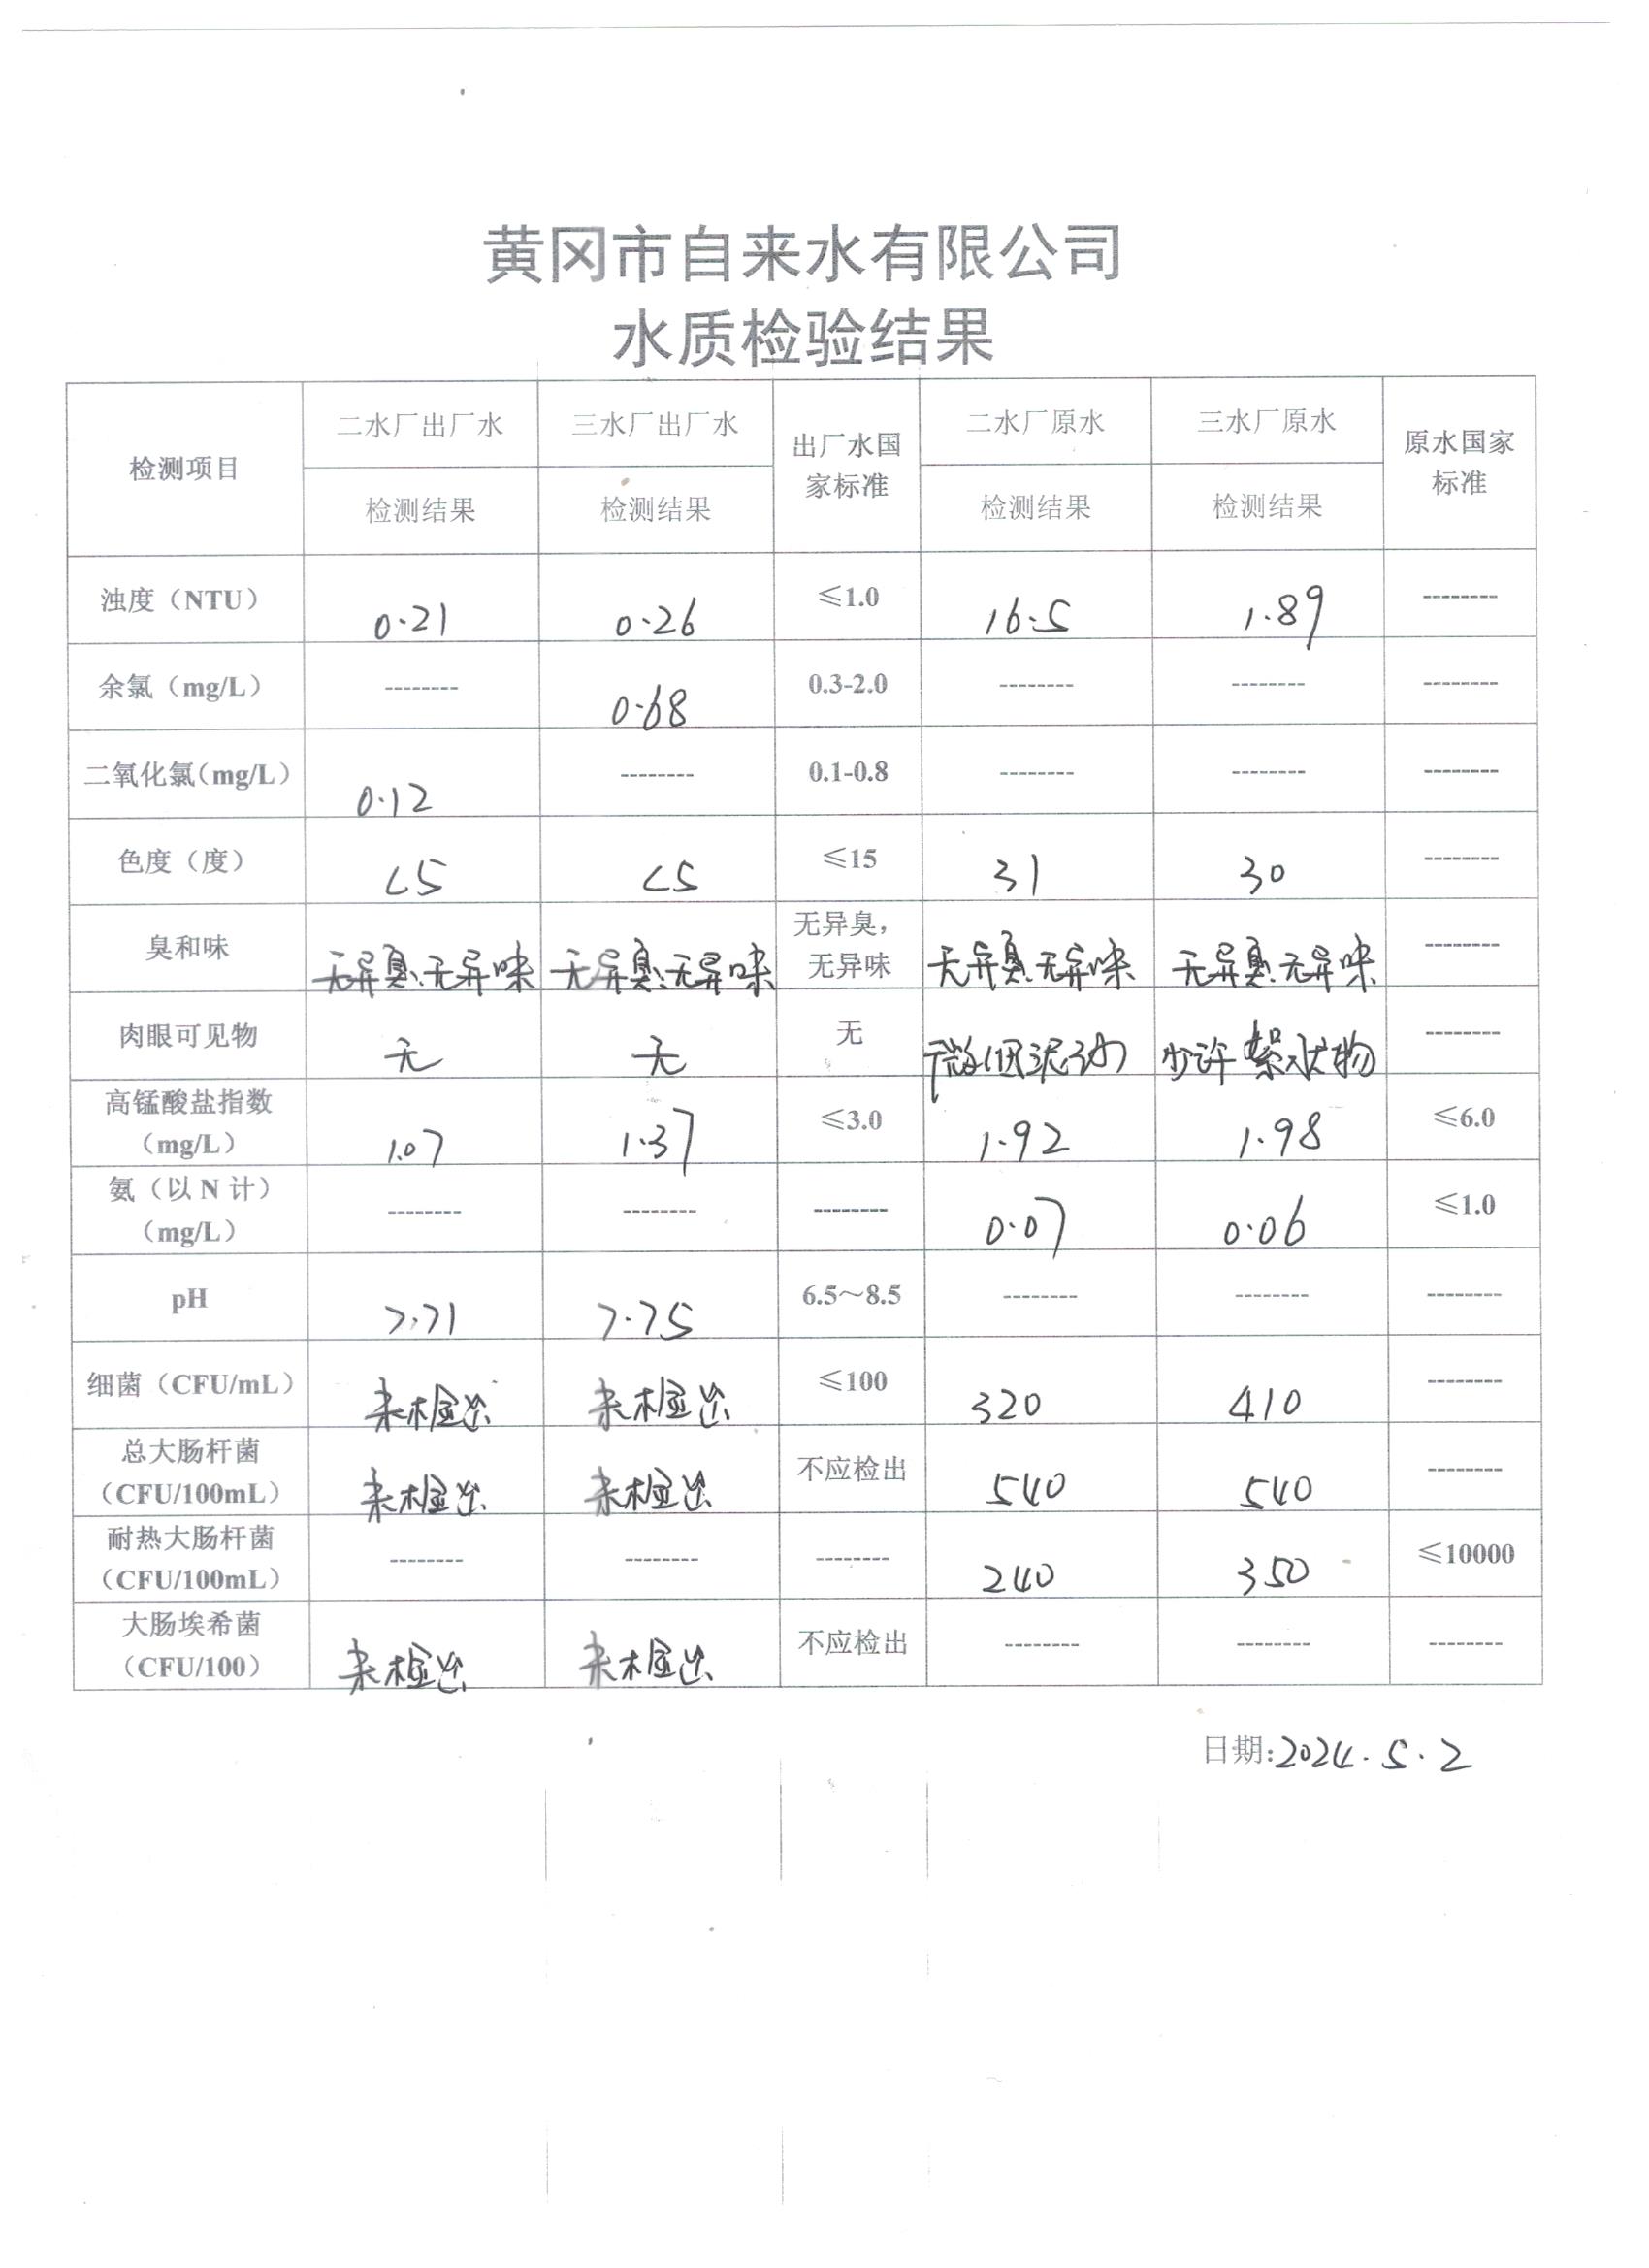 黄冈市自来水有限公司
水质检验结果
检测项目 二水厂出厂水 三水厂出厂水 出厂水国家标准 二水厂原水 三水厂原水 原水国家标准
检测结果 检测结果 检测结果 检测结果
浊度（NTU） 0.21 0.26 ≤1.0 16.5 1.89 --------
余氯（mg/L） -------- 0.68 0.3-2.0 -------- -------- --------
二氧化氯（mg/L） 0.12 -------- 0.1-0.8 -------- -------- --------
色度（度） <5 <5 ≤15 31 30 --------
臭和味 无异臭、无异味 无异臭、无异味 无异臭，无异味 无异臭、无异味 无异臭、无异味 --------
肉眼可见物 无 无 无 微细泥沙 少许絮状物 --------
高锰酸盐指数（mg/L） 1.07 1.37 ≤3.0 1.92 1.98 ≤6.0
氨（以N计）（mg/L） -------- -------- -------- 0.07 0.06 ≤1.0
pH 7.71 7.75 6.5～8.5 -------- -------- --------
细菌（CFU/mL） 未检出 未检出 ≤100 320 410 --------
总大肠杆菌（CFU/100mL） 未检出 未检出 不应检出 540 540 --------
耐热大肠杆菌（CFU/100mL） -------- -------- -------- 240 350 ≤10000
大肠埃希菌（CFU/100） 未检出 未检出 不应检出 -------- -------- --------
日期:2024.5.2